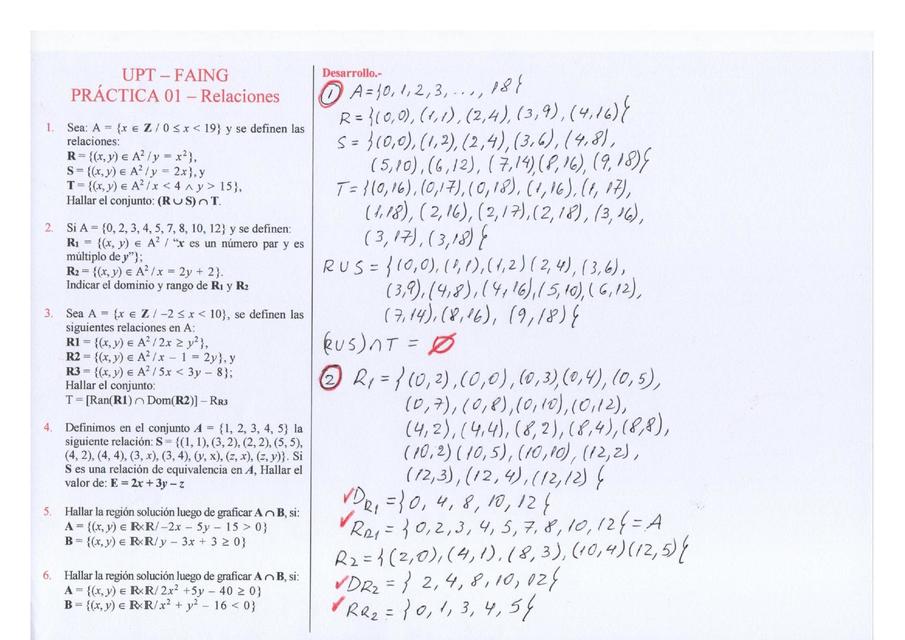 UPT – FAING
PRÁCTICA 01 – Relaciones
1. Sea: A = {x ∈ Z / 0 ≤ x < 19} y se definen las
relaciones:
R = {(x, y) ∈ A²/ y = x²},
S = {(x, y) ∈ A²/ y = 2x}, y
T = {(x, y) ∈ A²/ x < 4 ∧ y > 15},
Hallar el conjunto: (R ∪ S) ∩ T.
2. Si A = {0, 2, 3, 4, 5, 7, 8, 10, 12} y se definen:
R₁ = {(x, y) ∈ A² / “x es un número par y es
múltiplo de y”};
R₂ = {(x, y) ∈ A²/ x = 2y + 2}.
Indicar el dominio y rango de R₁ y R₂
3. Sea A = {x ∈ Z / –2 ≤ x < 10}, se definen las
siguientes relaciones en A:
R1 = {(x, y) ∈ A²/ 2x ≥ y²},
R2 = {(x, y) ∈ A²/ x – 1 = 2y}, y
R3 = {(x, y) ∈ A²/ 5x < 3y – 8};
Hallar el conjunto:
T = [Ran(R1) ∩ Dom(R2)] – R_R3
4. Definimos en el conjunto A = {1, 2, 3, 4, 5} la
siguiente relación: S = {(1, 1), (3, 2), (2, 2), (5, 5),
(4, 2), (4, 4), (3, x), (3, 4), (y, x), (z, x), (z, y)}. Si
S es una relación de equivalencia en A, Hallar el
valor de: E = 2x + 3y – z
5. Hallar la región solución luego de graficar A ∩ B, si:
A = {(x, y) ∈ R×R/ –2x – 5y – 15 > 0}
B = {(x, y) ∈ R×R/ y – 3x + 3 ≥ 0}
6. Hallar la región solución luego de graficar A ∩ B, si:
A = {(x, y) ∈ R×R/ 2x² +5y – 40 ≥ 0}
B = {(x, y) ∈ R×R/ x² + y² – 16 < 0}
Desarrollo.-
① A={0,1,2,3,..., 18}
R = {(0,0),(1,1),(2,4),(3,9),(4,16)}
S = {(0,0),(1,2),(2,4),(3,6),(4,8),
(5,10),(6,12), (7,14)(8,16),(9,18)}
T={(0,16),(0,17),(0,18),(1,16),(1,17),
(1,18),(2,16),(2,17),(2,18),(3,16),
(3,17),(3,18)}
RUS = {(0,0),(1,1),(1,2)(2,4),(3,6),
(3,9),(4,8),(4,16),(5,10),(6,12),
(7,14),(8,16), (9,18)}
(RUS)∩T = ∅
② R₁ = {(0,2),(0,0),(0,3)(0,4),(0,5),
(0,7),(0,8),(0,10),(0,12),
(4,2),(4,4),(8,2),(8,4),(8,8),
(10,2)(10,5),(10,10),(12,2),
(12,3),(12,4),(12,12)}
✓D_R₁ = {0, 4, 8, 10, 12}
✓R_R₁ = {0,2,3,4,5,7,8,10,12}=A
R₂={(2,0),(4,1),(8,3),(10,4)(12,5)}
✓D_R₂ = {2,4,8,10,02}
✓R_R₂ = {0,1,3,4,5}